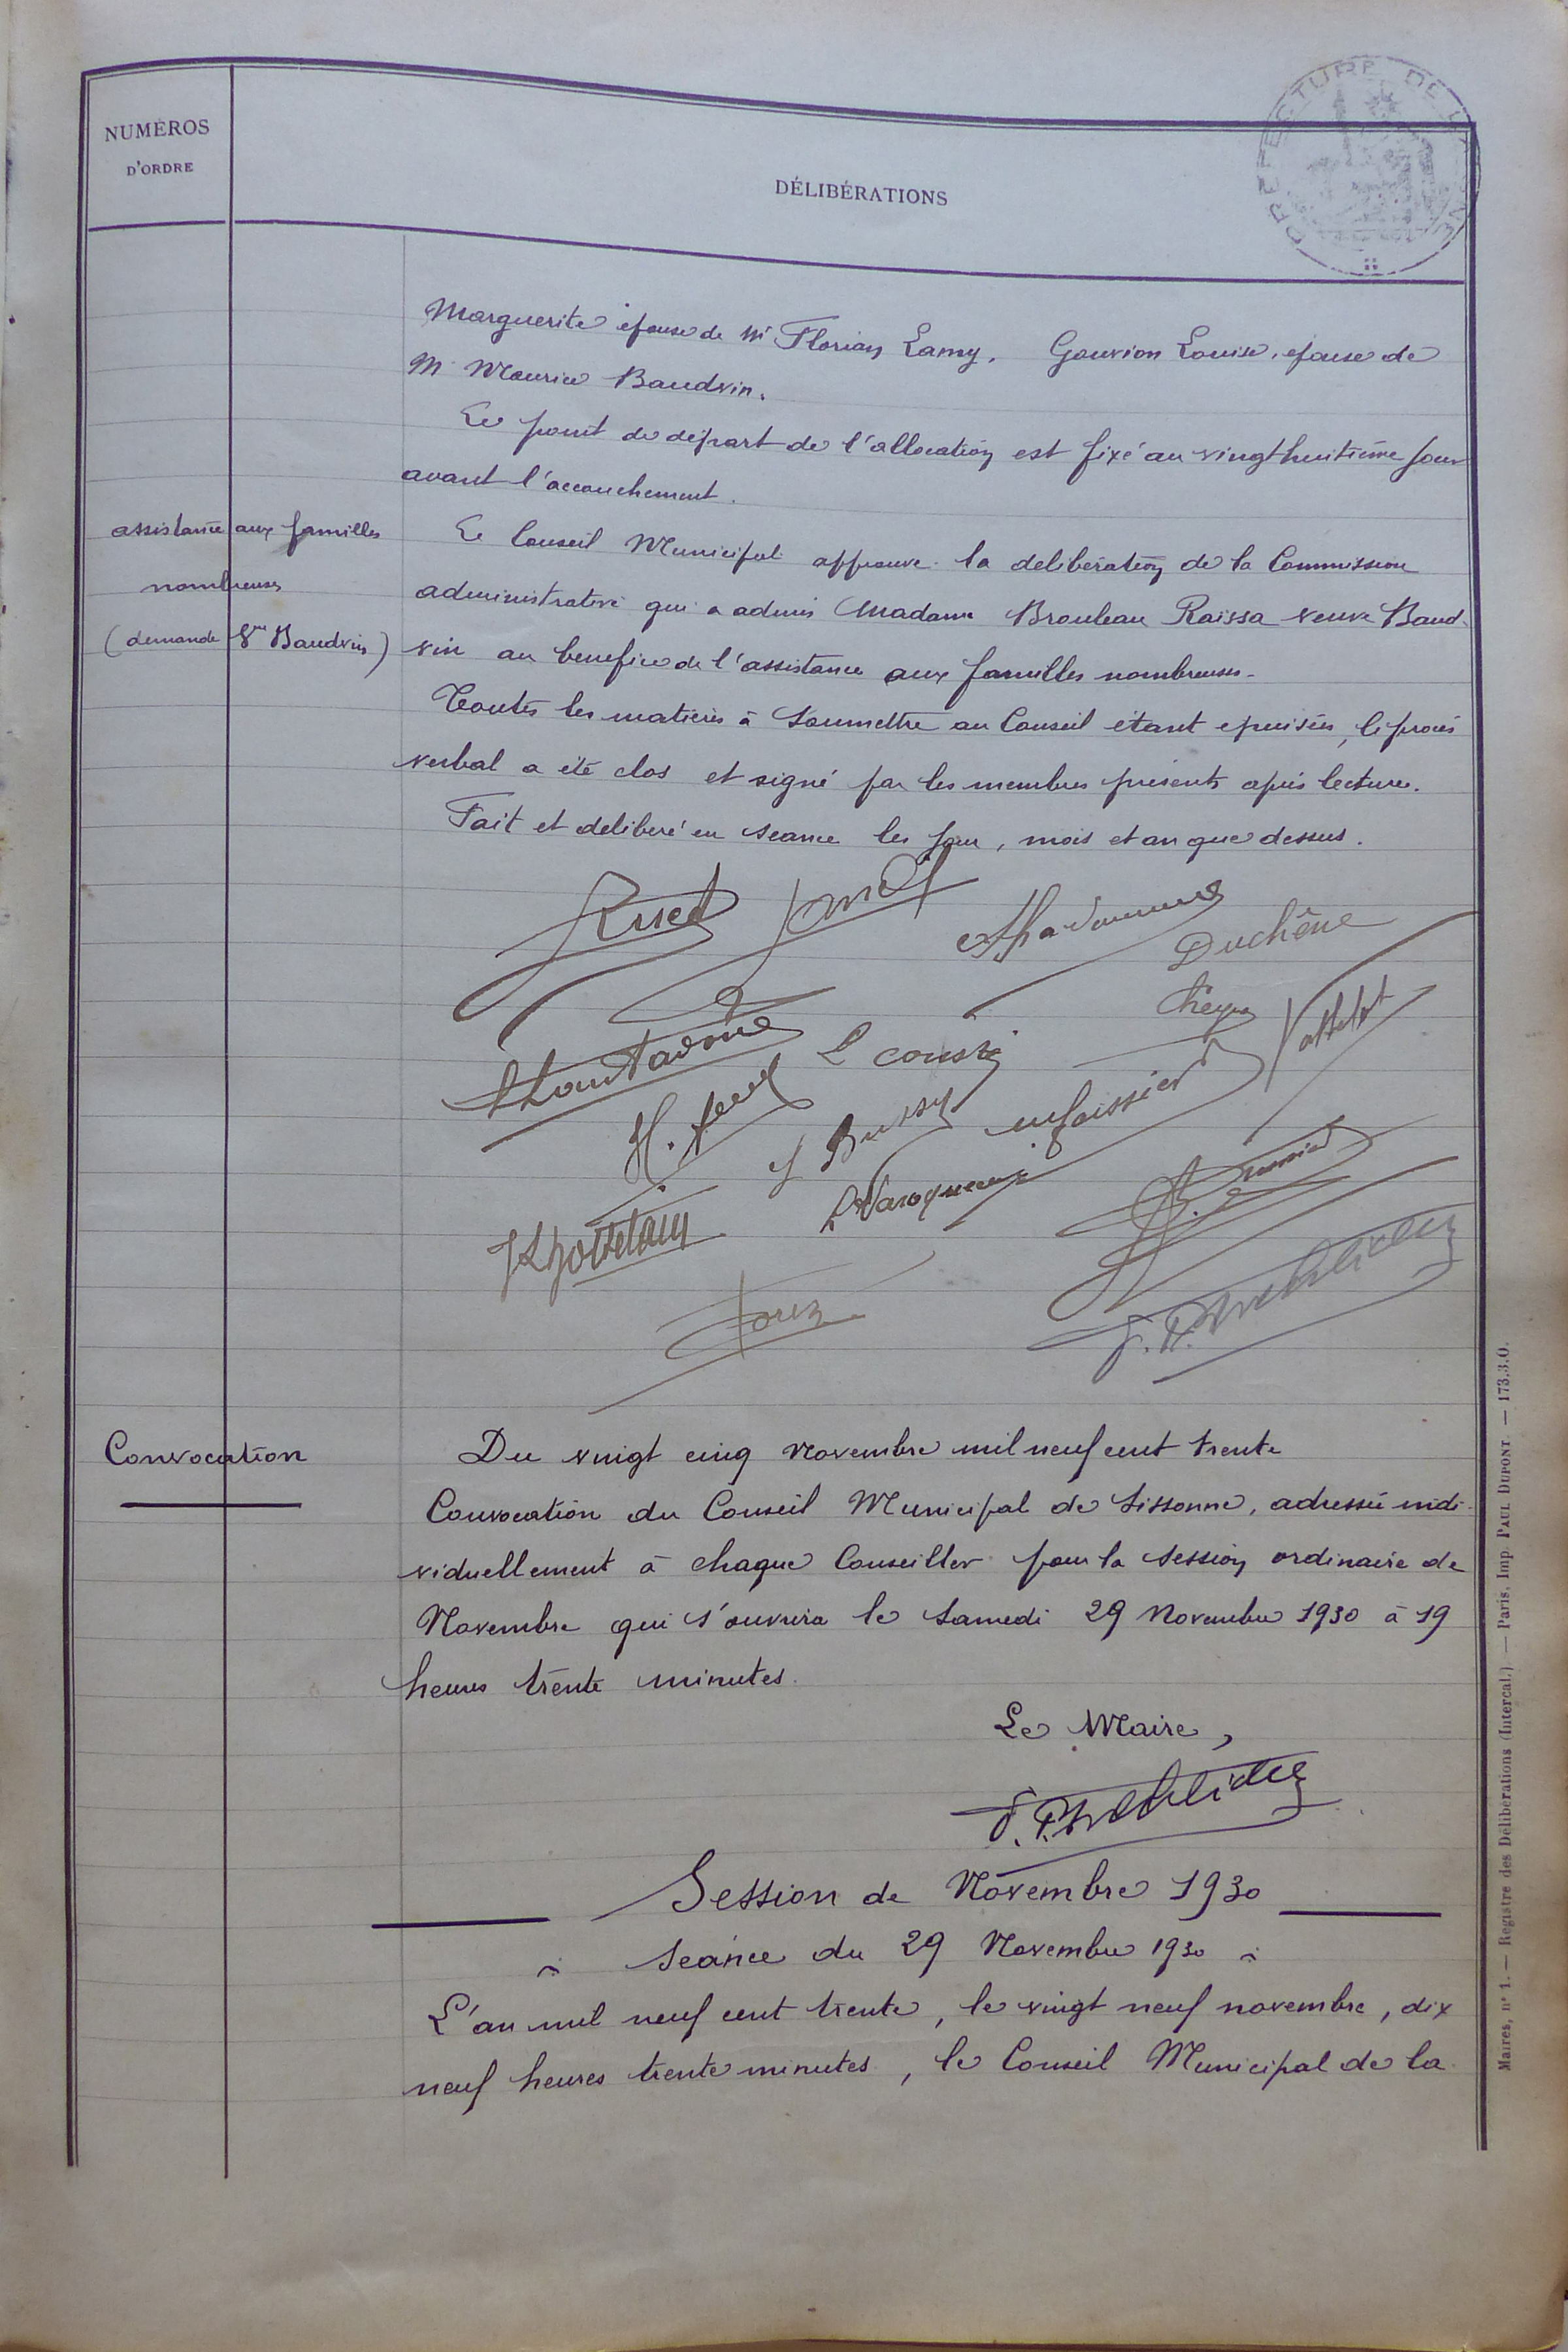 NUMÉROS
D'ORDRE
DÉLIBÉRATIONS
PREFECTURE DE L'AISNE
Marguerite épouse de Mr Florian Lamy. Gouvion Louise, épouse de
M. Maurice Baudvin.
Le point de départ de l'allocation est fixé au vingthuitième jour
avant l'accouchement.
assistance aux familles
nombreuses
(demande Vve Baudvin)
Le Conseil Municipal approuve la déliberation de la Commission
administrative qui a admis Madame Brouleau Raïssa veuve Baud-
vin au benefice de l'assistance aux familles nombreuses.
Toutes les matières à soumettre au Conseil étant epuisées, le procès
verbal a été clos et signé par les membres présents après lecture.
Fait et deliberé en seance les jour, mois et an que dessus.
Duchêne
L cousin
J Bussy
Convocation
Du vingt cinq Novembre mil neuf cent trente
Convocation du Conseil Municipal de Sissonne, adressée indi-
viduellement à chaque Conseiller pour la session ordinaire de
Novembre qui s'ouvrira le Samedi 29 Novembre 1930 à 19
heures trente minutes.
Le Maire,
Session de Novembre 1930
Seance du 29 Novembre 1930
L'an mil neuf cent trente, le vingt neuf novembre, dix
neuf heures trente minutes, le Conseil Municipal de la
Maires, n° 1. — Registre des Délibérations (Intercal.) — Paris, Imp. PAUL DUPONT. — 173.3.O.